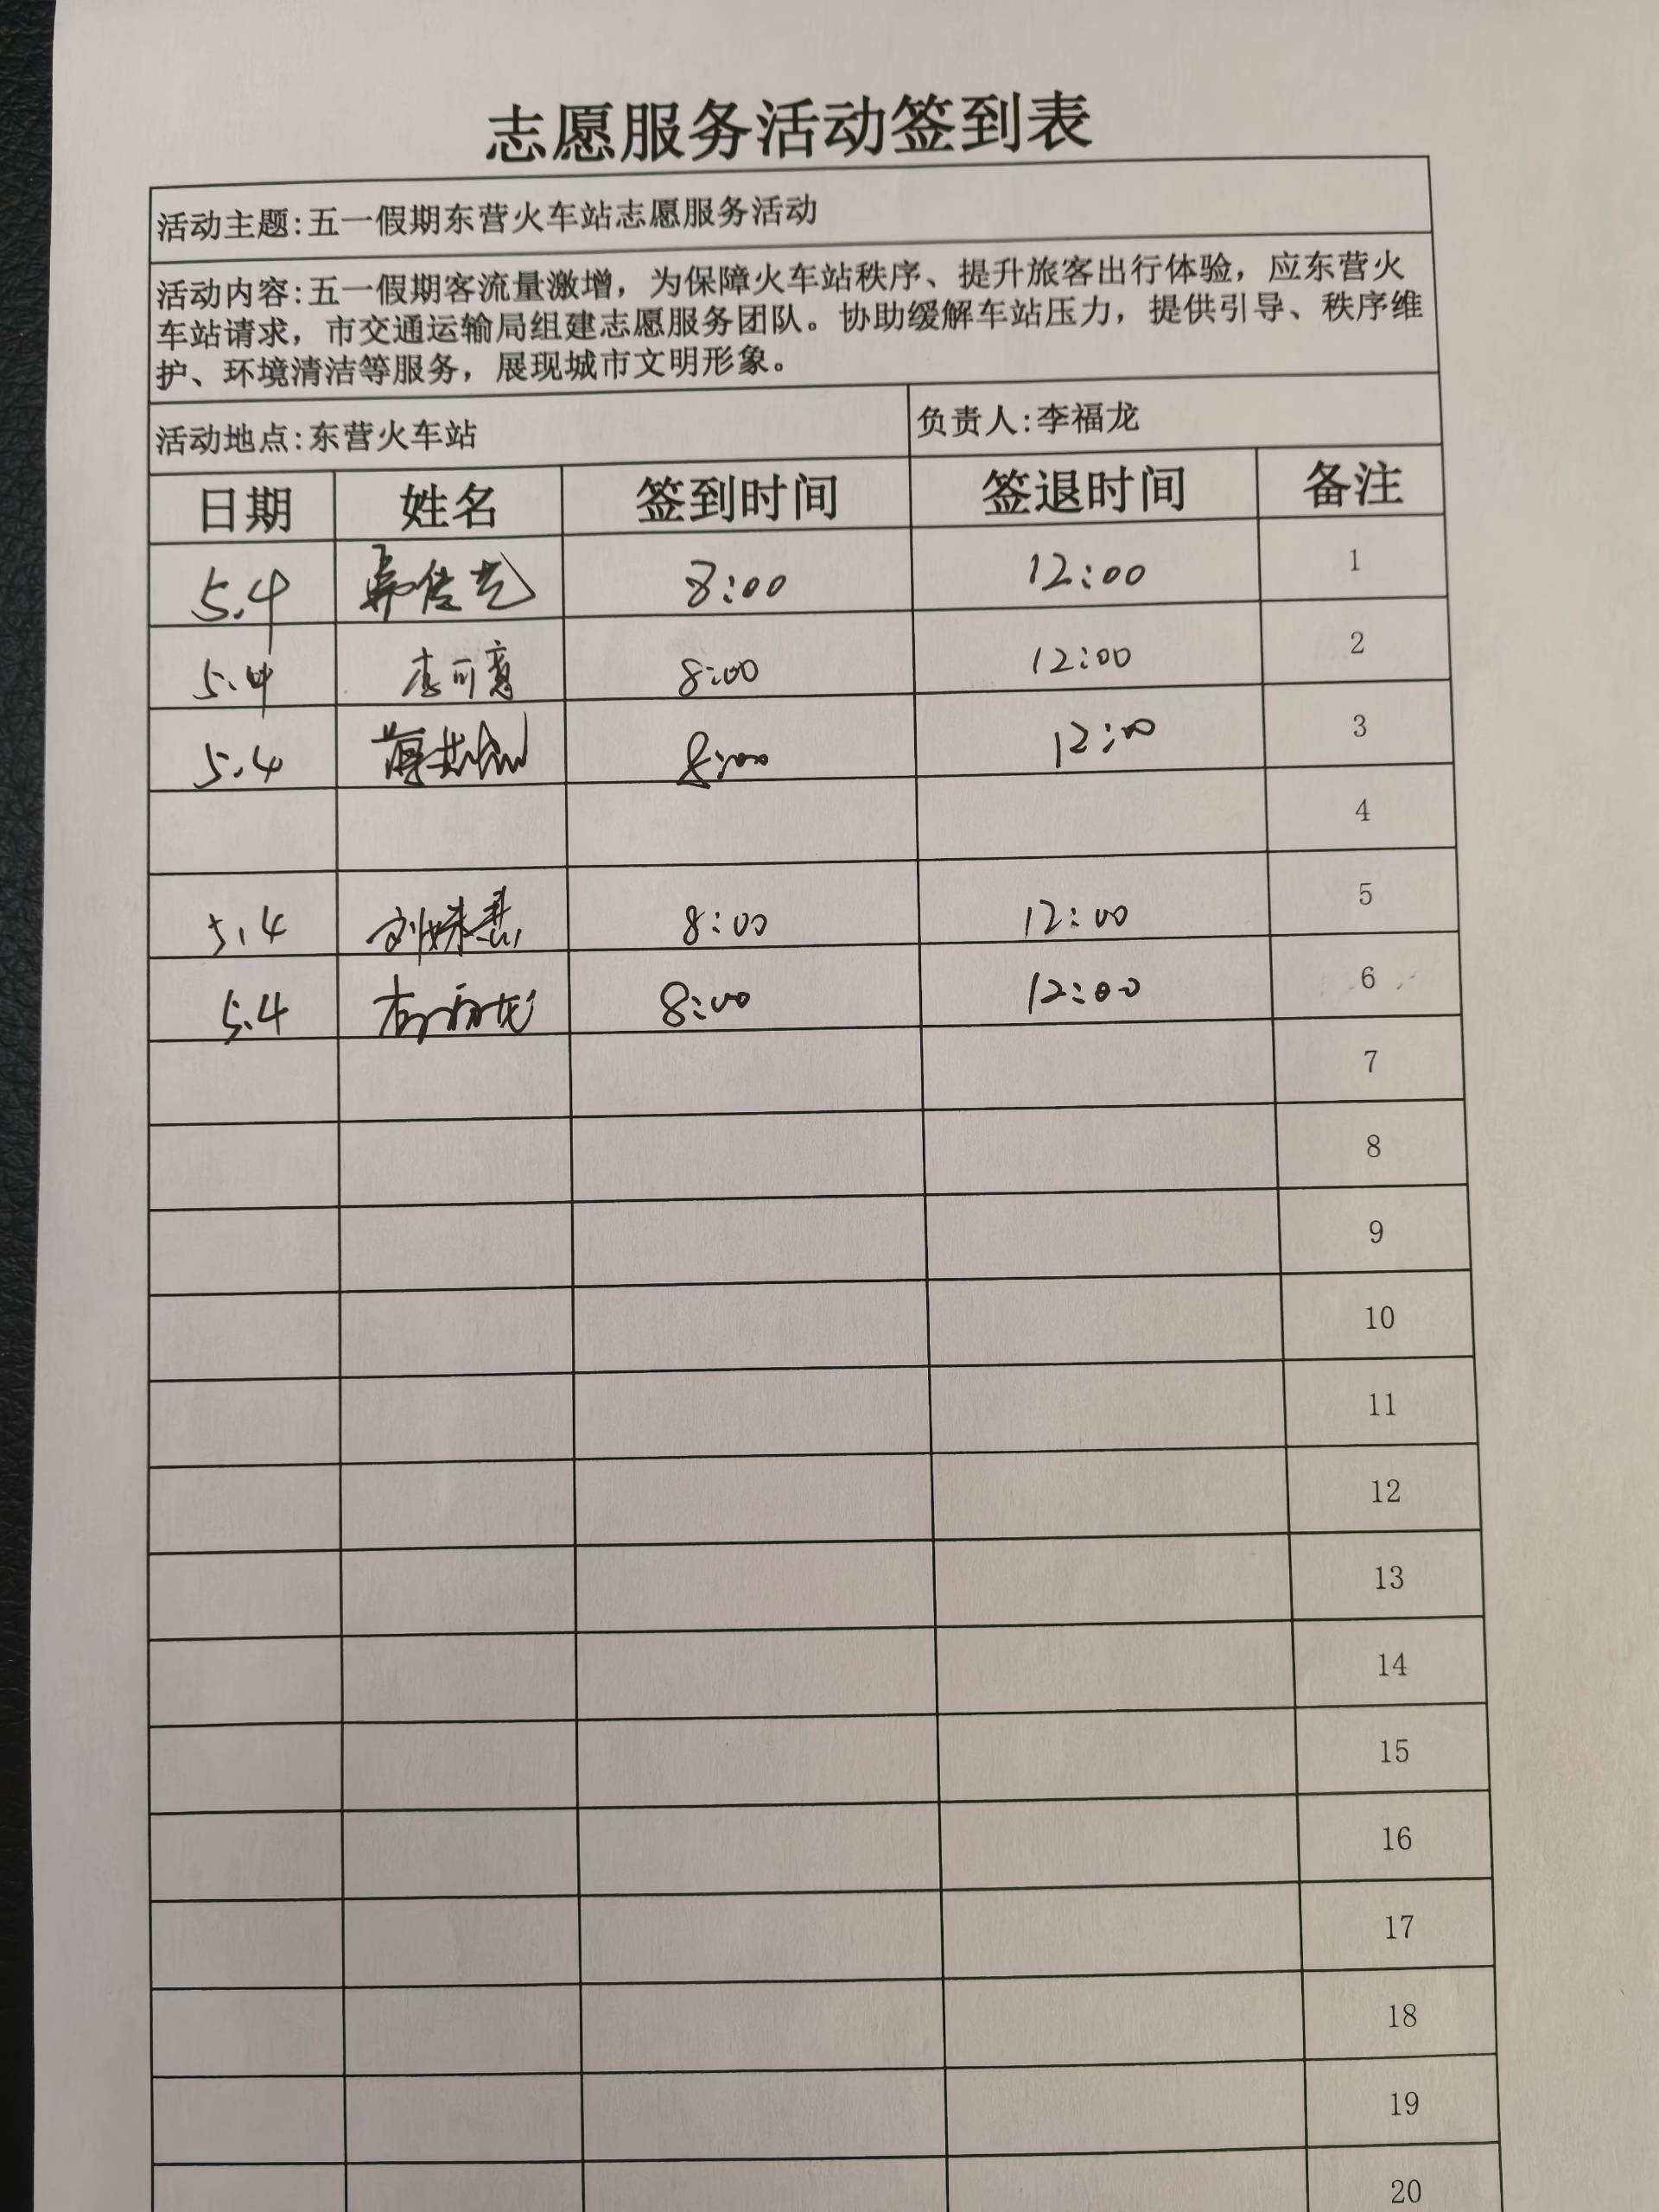 志愿服务活动签到表
活动主题:五一假期东营火车站志愿服务活动
活动内容:五一假期客流量激增，为保障火车站秩序、提升旅客出行体验，应东营火
车站请求，市交通运输局组建志愿服务团队。协助缓解车站压力，提供引导、秩序维
护、环境清洁等服务，展现城市文明形象。
活动地点:东营火车站 负责人:李福龙
日期 姓名 签到时间 签退时间 备注
5.4 8:00 12:00 1
5.4 李可意 8:00 12:00 2
5.4 8:00 12:00 3
4
5.4 刘姝慧 8:00 12:00 5
5.4 李福龙 8:00 12:00 6
7
8
9
10
11
12
13
14
15
16
17
18
19
20